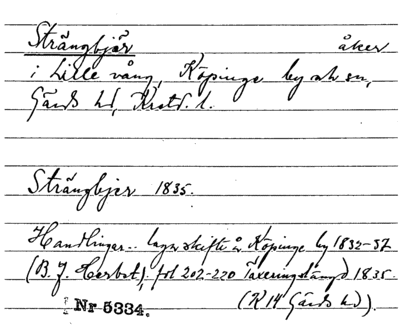 Strängbjär åker
i Lille vång, Köpinge by och sn,
Gärds hd, Kristd. l.
Strängbjer 1835.
Handlingar.. laga skifte å Köpinge by 1832-37
(B. J. Herbst); fol 202-220 Taxeringslängd 1835.
(K 14 Gärds hd).
Nr 5334.